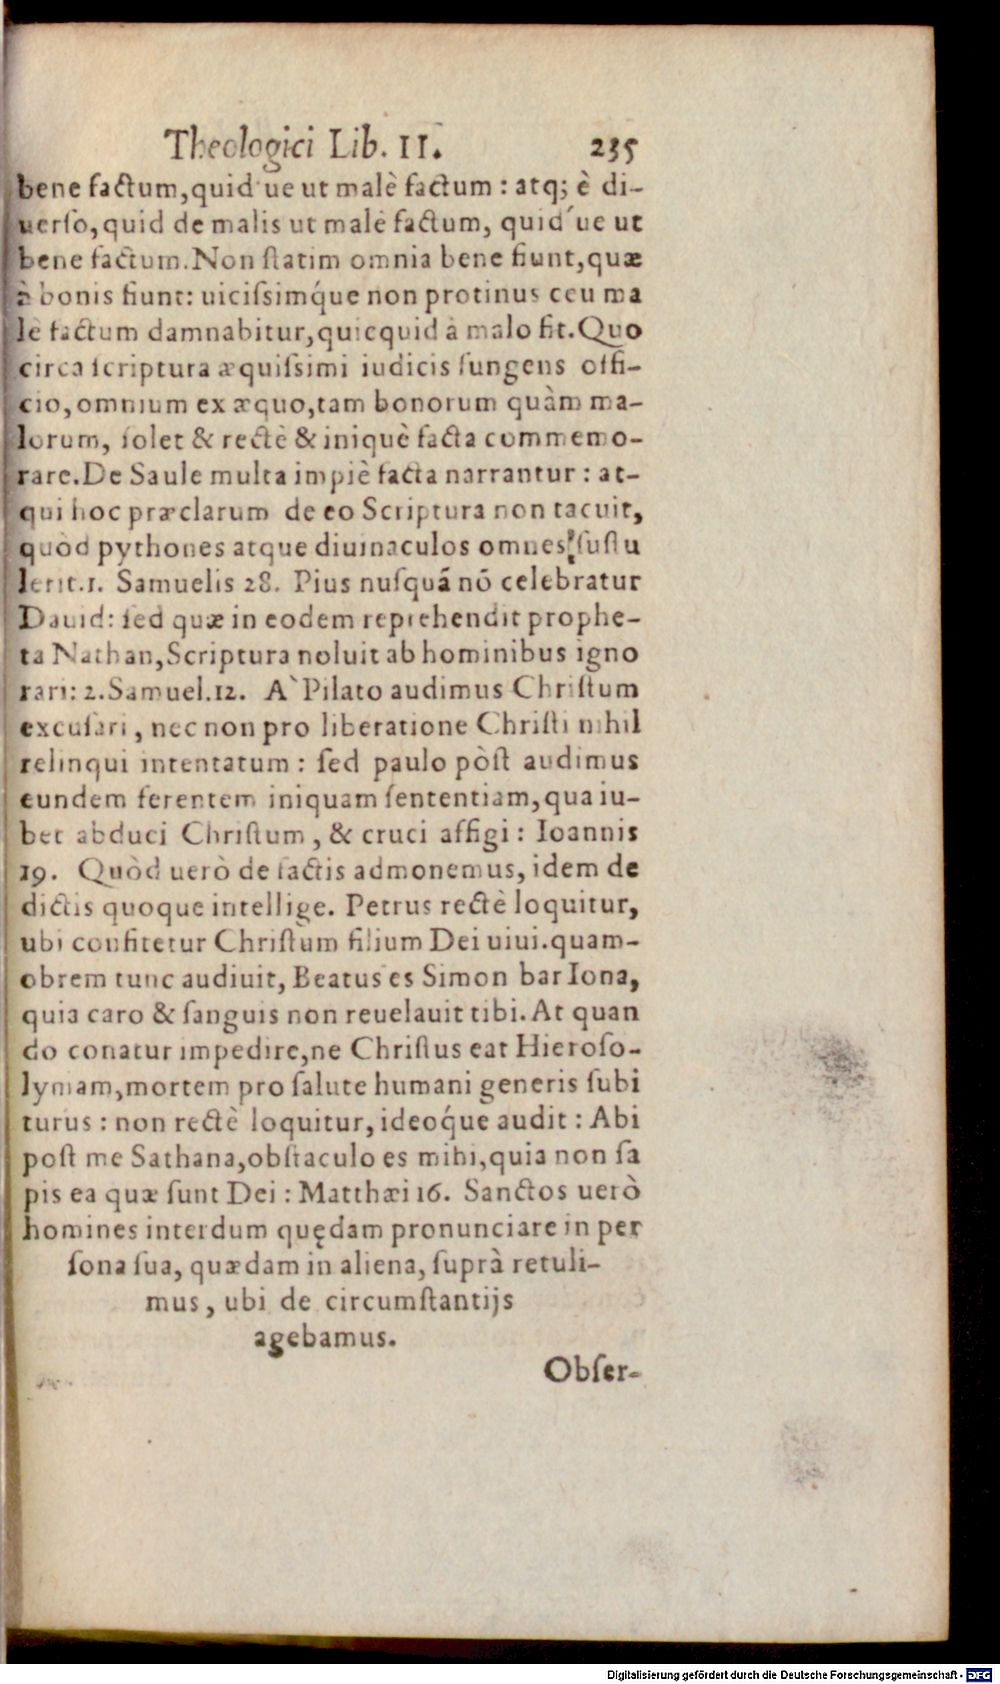 Theologici Lib. II. 235
bene factum, quid´ue ut malè factum : atq; è di-
uerſo, quid de malis ut malè factum, quid´ue ut
bene factum. Non ſtatim omnia bene fiunt, quæ
à bonis fiunt: uiciſsimq́ue non protinus ceu ma
lè factum damnabitur, quicquid à malo fit. Quo
circa ſcriptura æquiſsimi iudicis fungens offi-
cio, omnium ex æquo, tam bonorum quàm ma-
lorum, ſolet & rectè & iniquè facta commemo-
rare. De Saule multa impiè facta narrantur : at-
qui hoc præclarum de eo Scriptura non tacuit,
quòd pythones atque diuinaculos omnes ſuſtu
lerit. 1. Samuelis 28. Pius nuſquā nō celebratur
Dauid: ſed quæ in eodem reprehendit prophe-
ta Nathan, Scriptura noluit ab hominibus igno
rari: 2. Samuel. 12. A` Pilato audimus Chriſtum
excuſari, nec non pro liberatione Chriſti nihil
relinqui intentatum : ſed paulo pòſt audimus
eundem ferentem iniquam ſententiam, qua iu-
bet abduci Chriſtum, & cruci affigi : Ioannis
19. Quòd uerò de factis admonemus, idem de
dictis quoque intellige. Petrus rectè loquitur,
ubi confitetur Chriſtum filium Dei uiui. quam-
obrem tunc audiuit, Beatus es Simon bar Iona,
quia caro & ſanguis non reuelauit tibi. At quan
do conatur impedire, ne Chriſtus eat Hieroſo-
lymam, mortem pro ſalute humani generis ſubi
turus : non rectè loquitur, ideoq́ue audit : Abi
poſt me Sathana, obſtaculo es mihi, quia non ſa
pis ea quæ ſunt Dei : Matthæi 16. Sanctos uerò
homines interdum quędam pronunciare in per
ſona ſua, quædam in aliena, ſuprà retuli-
mus, ubi de circumſtantijs
agebamus.
Obſer-
Digitalisierung gefördert durch die Deutsche Forschungsgemeinschaft - DFG